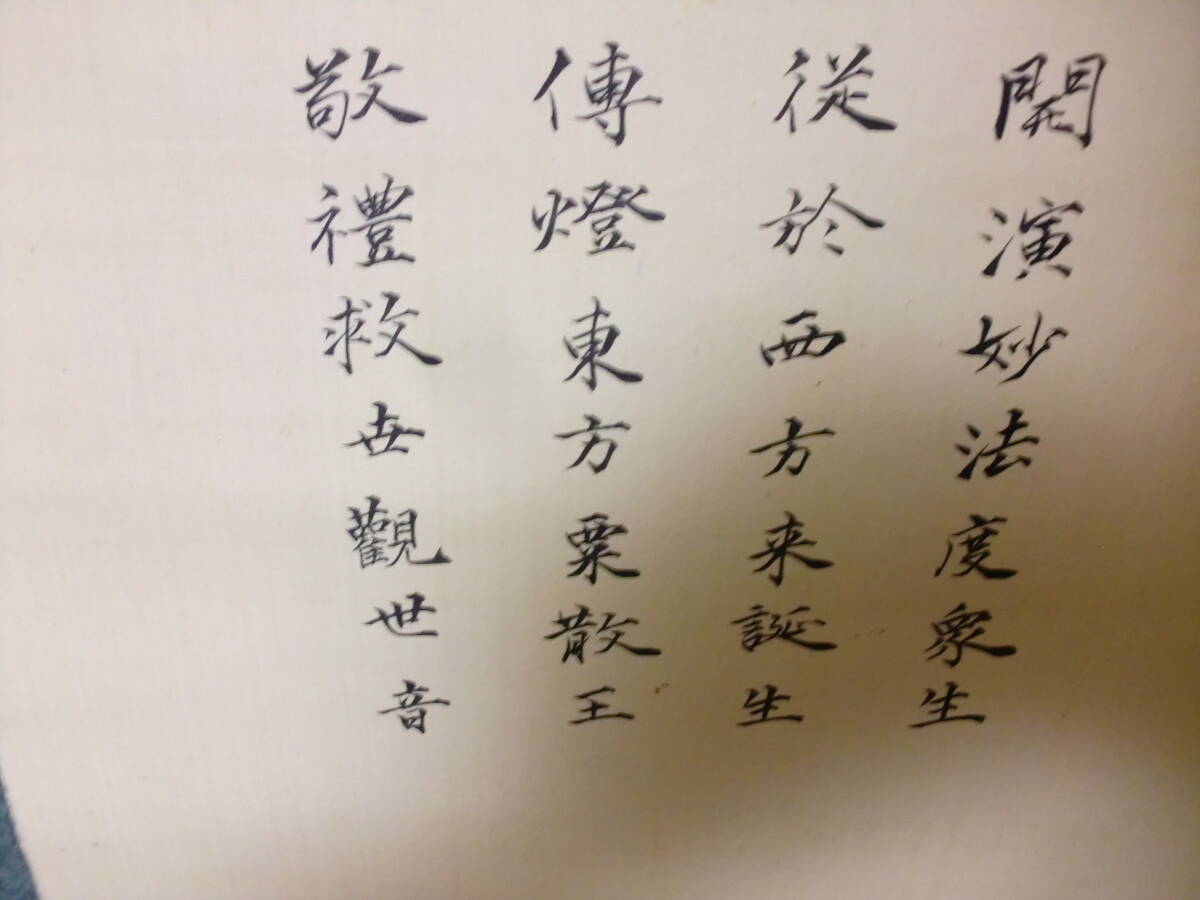 開演妙法度衆生
從於西方来誕生
傳燈東方粟散王
敬禮救世觀世音